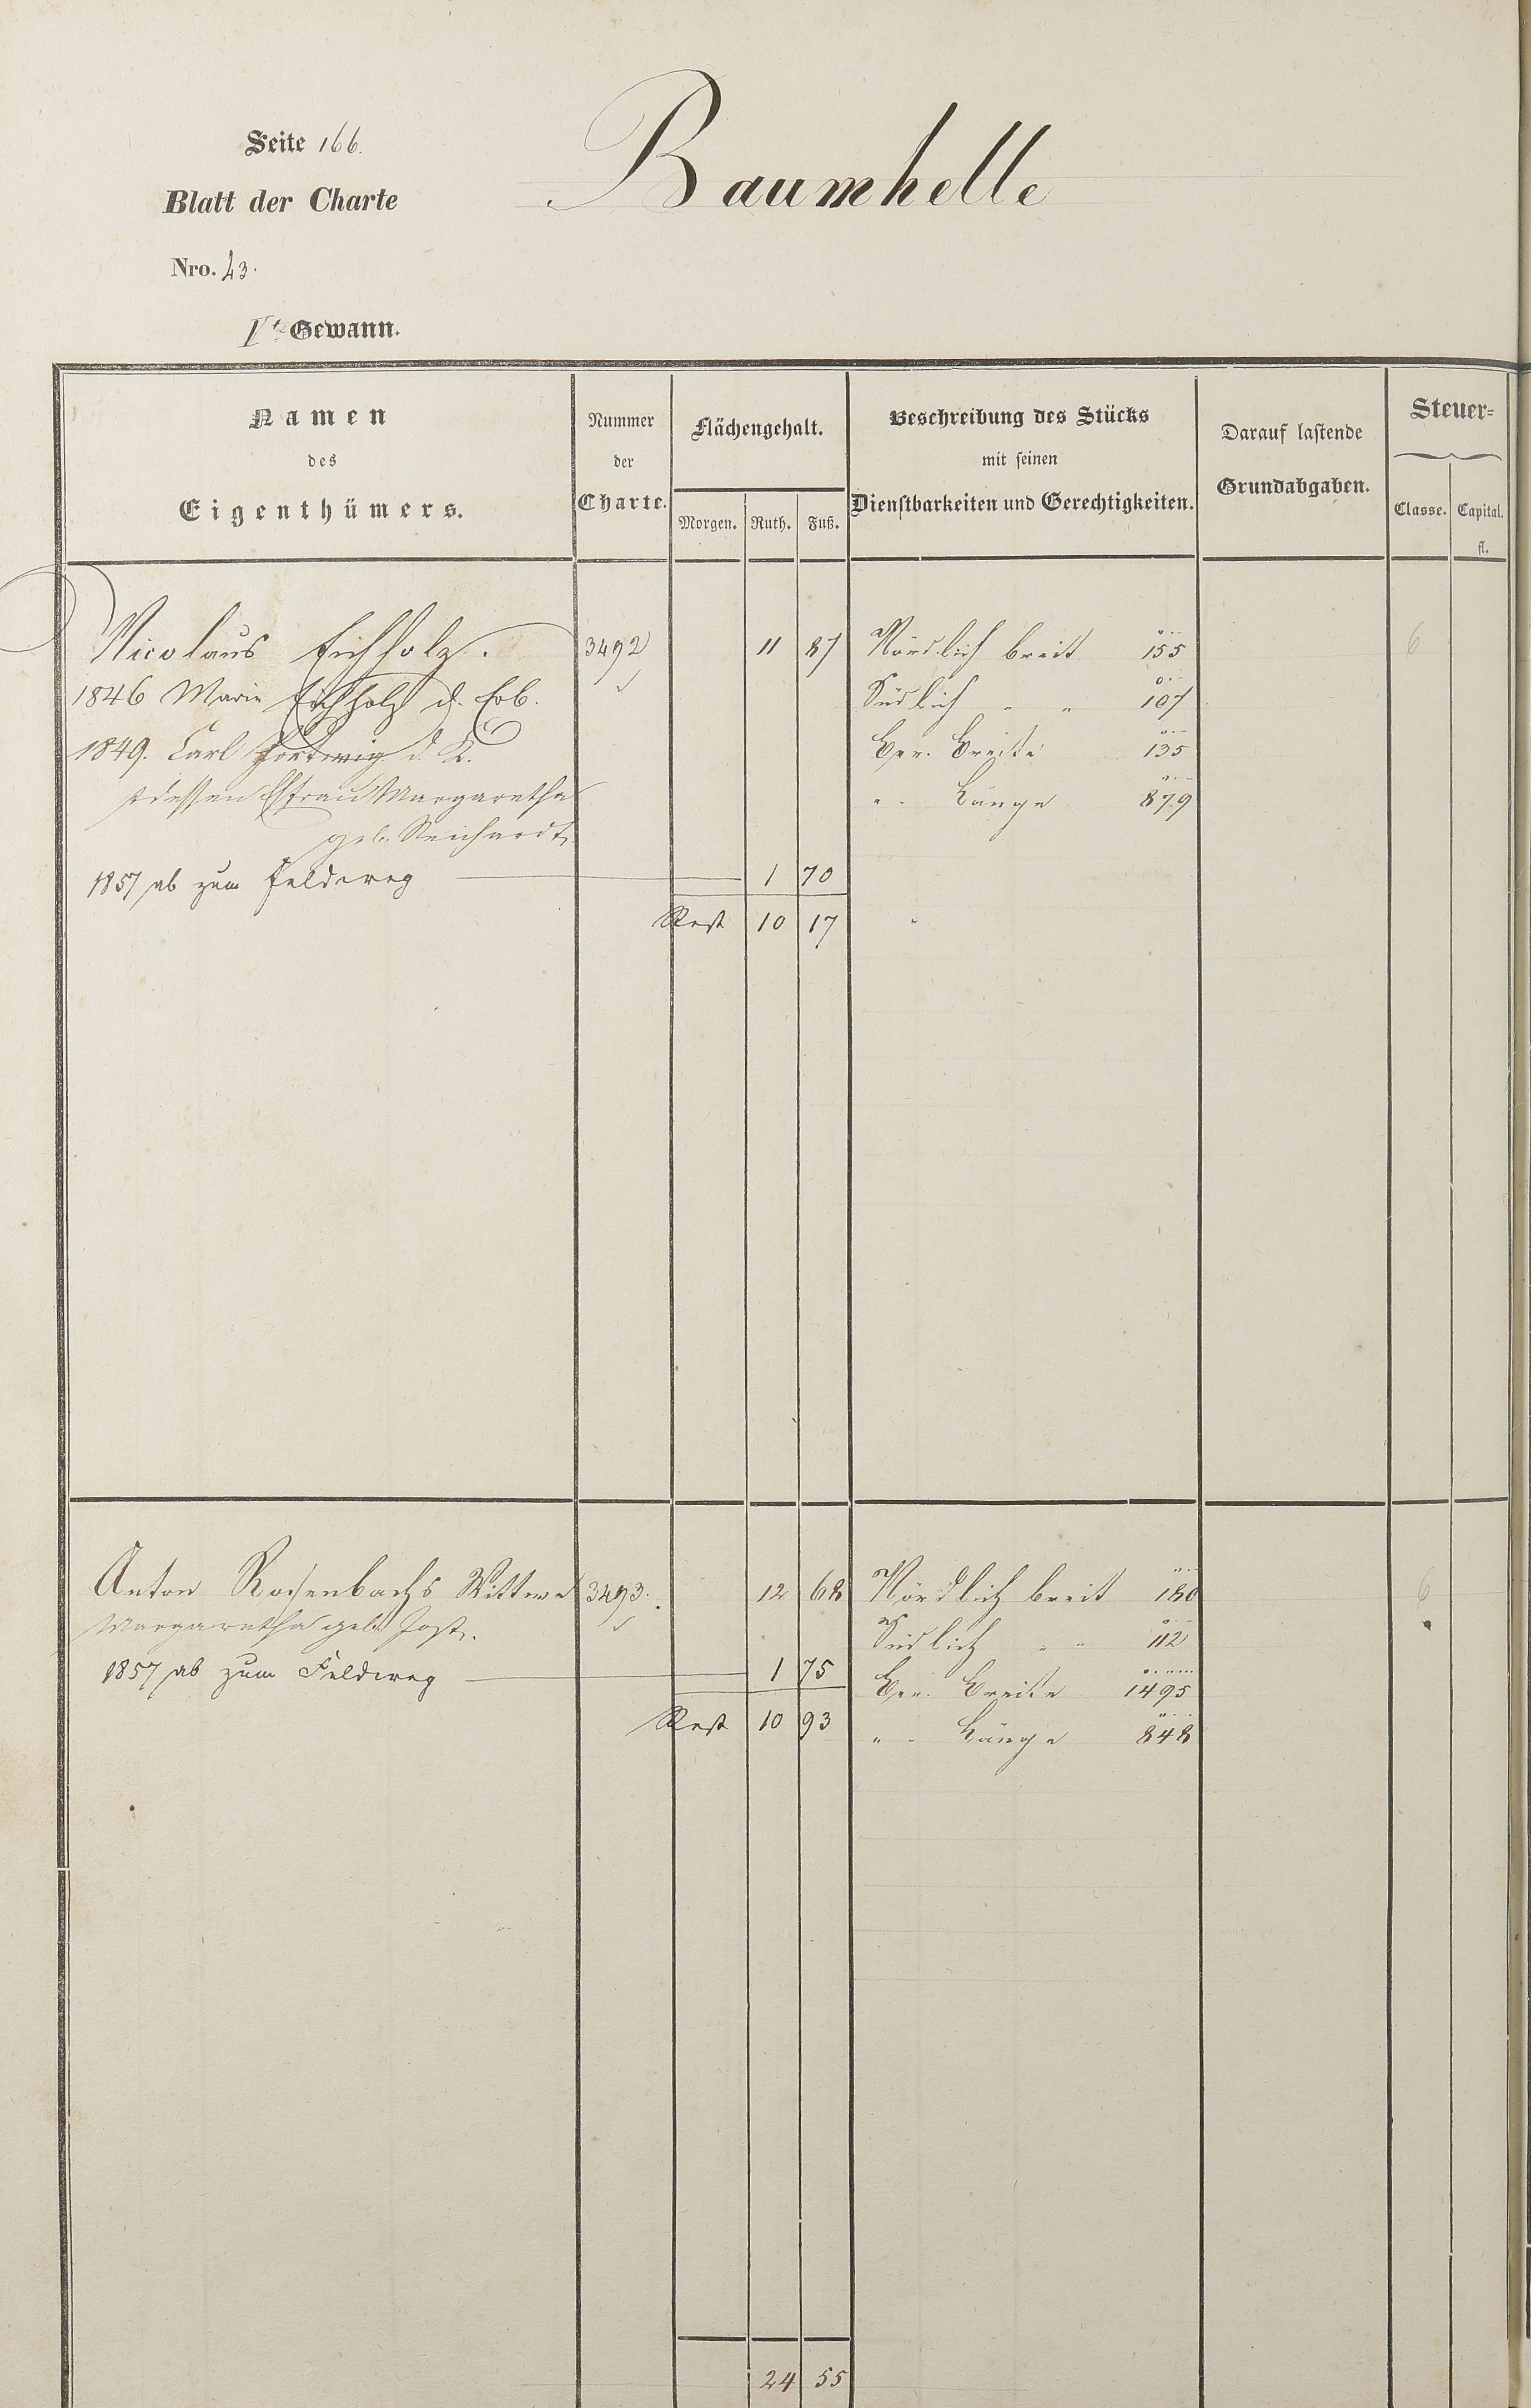 Seite 166.
Baumhelle
Blatt der Charte
Nro. 43.
Ite Gewann.
Namen
des
Eigenthümers.
Nummer
der
Charte.
Flächengehalt.
Morgen. Ruth. Fuß.
Beschreibung des Stücks
mit seinen
Dienstbarkeiten und Gerechtigkeiten.
Darauf lastende
Grundabgaben.
Steuer-
Classe. Capital.
fl.
Nicolaus Eichholz. 3492 11 87 Nördlich breit 155 6
1846 Marie Eichholz d. Erb. Südlich " " 107
1849. Carl Hartwig d. K. Ger. Breite 135
dessen Ehfrau Margaretha " " Länge 879
geb. Reichardt.
1857 ab zum Feldweg 1 70
Rest 10 17
Anton Rosenbachs Wittwe 3493. 12 68 Nördlich breit 180 6
Margaretha geb. Jost. Südlich " " 112
1857 ab zum Feldweg 1 75 Ger. Breite 1495
Rest 10 93 " " Länge 848
24 55